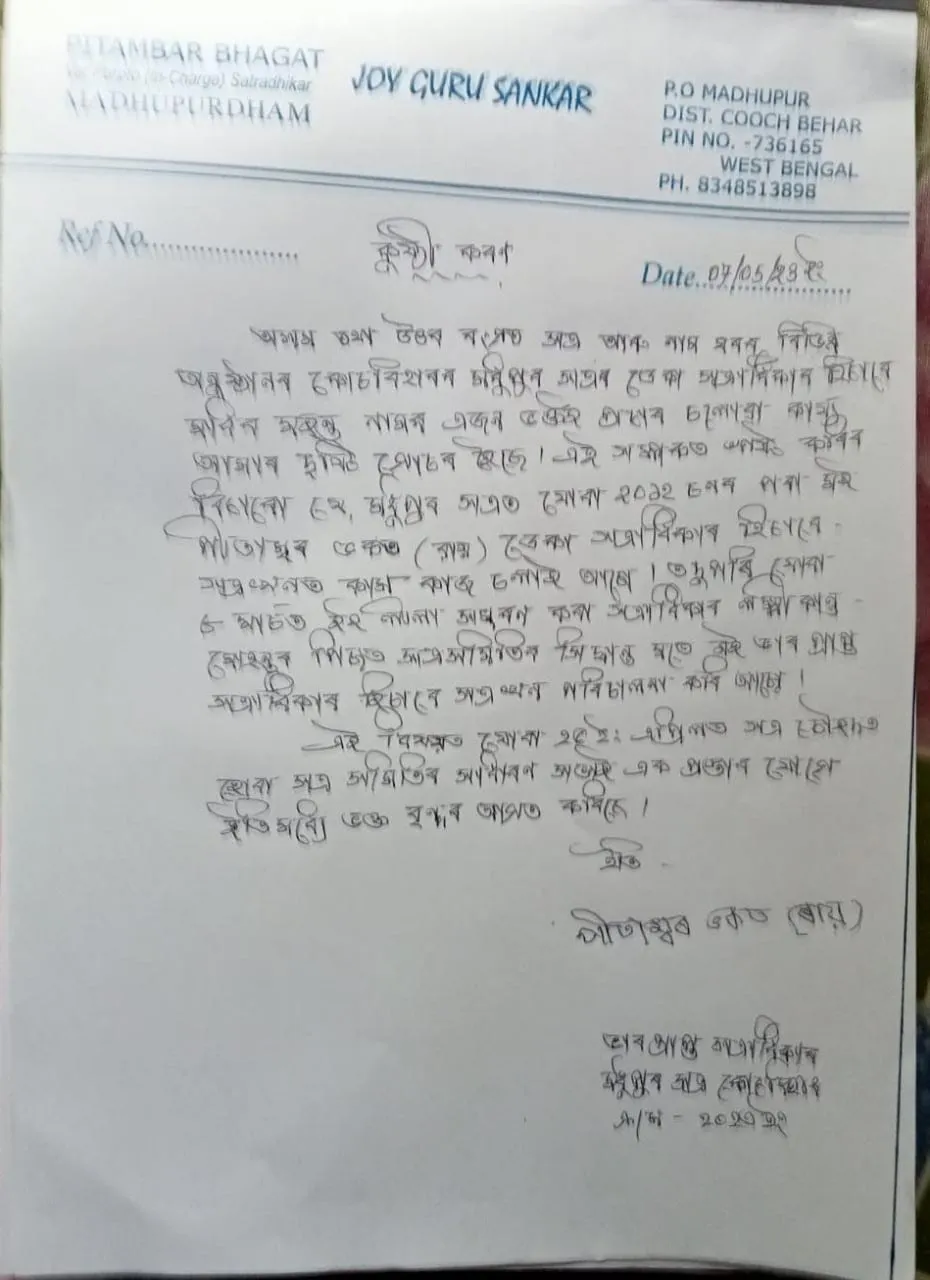 PITAMBAR BHAGAT
(In-Charge) Satradhikar
MADHUPURDHAM
JOY GURU SANKAR
P.O MADHUPUR
DIST. COOCH BEHAR
PIN NO. -736165
WEST BENGAL
PH. 8348513898
Ref No....................
Date..07/05/23 ইং
অসম তথা উত্তৰ বংগত সত্ৰ আৰু নাম ঘৰৰ বিভিন্ন
অনুষ্ঠানৰ কোচবিহাৰৰ মধুপুৰ সত্ৰৰ ডেকা সত্ৰাধিকাৰ হিচাবে
মহন্ত নামৰ এজন প্ৰচাৰ চলোৱা কাৰ্য্য
আমাৰ দৃষ্টি গোচৰ হৈছে। এই সম্পৰ্কত
যে, মধুপুৰ সত্ৰত যোৱা ২০১২ চনৰ পৰা মই
পীতাম্বৰ ভকত (ৰায়) ডেকা সত্ৰাধিকাৰ হিচাবে
সত্ৰখনত কাম কাজ চলাই আছো। তদুপৰি যোৱা
মাৰ্চত ইহ লীলা সম্বৰণ কৰা সত্ৰাধিকাৰ লক্ষ্মী কান্ত
মোহন্তৰ পিচত সত্ৰসমিতিৰ সিদ্ধান্ত মতে মই ভাৰ প্ৰাপ্ত
সত্ৰাধিকাৰ হিচাবে সত্ৰখন পৰিচালনা কৰি আছো।
এই বিষয়ত যোৱা ২৫ ইং এপ্ৰিলত সত্ৰ চৌহদত
হোৱা সত্ৰ সমিতিৰ সাধাৰণ সভাই এক প্ৰস্তাৱ যোগে
ইতিমধ্যে ভক্ত বৃন্দৰ কৰিছে।
ইতি
পীতাম্বৰ ভকত (ৰায়)
ভাৰপ্ৰাপ্ত সত্ৰাধিকাৰ
মধুপুৰ সত্ৰ কোচবিহাৰ